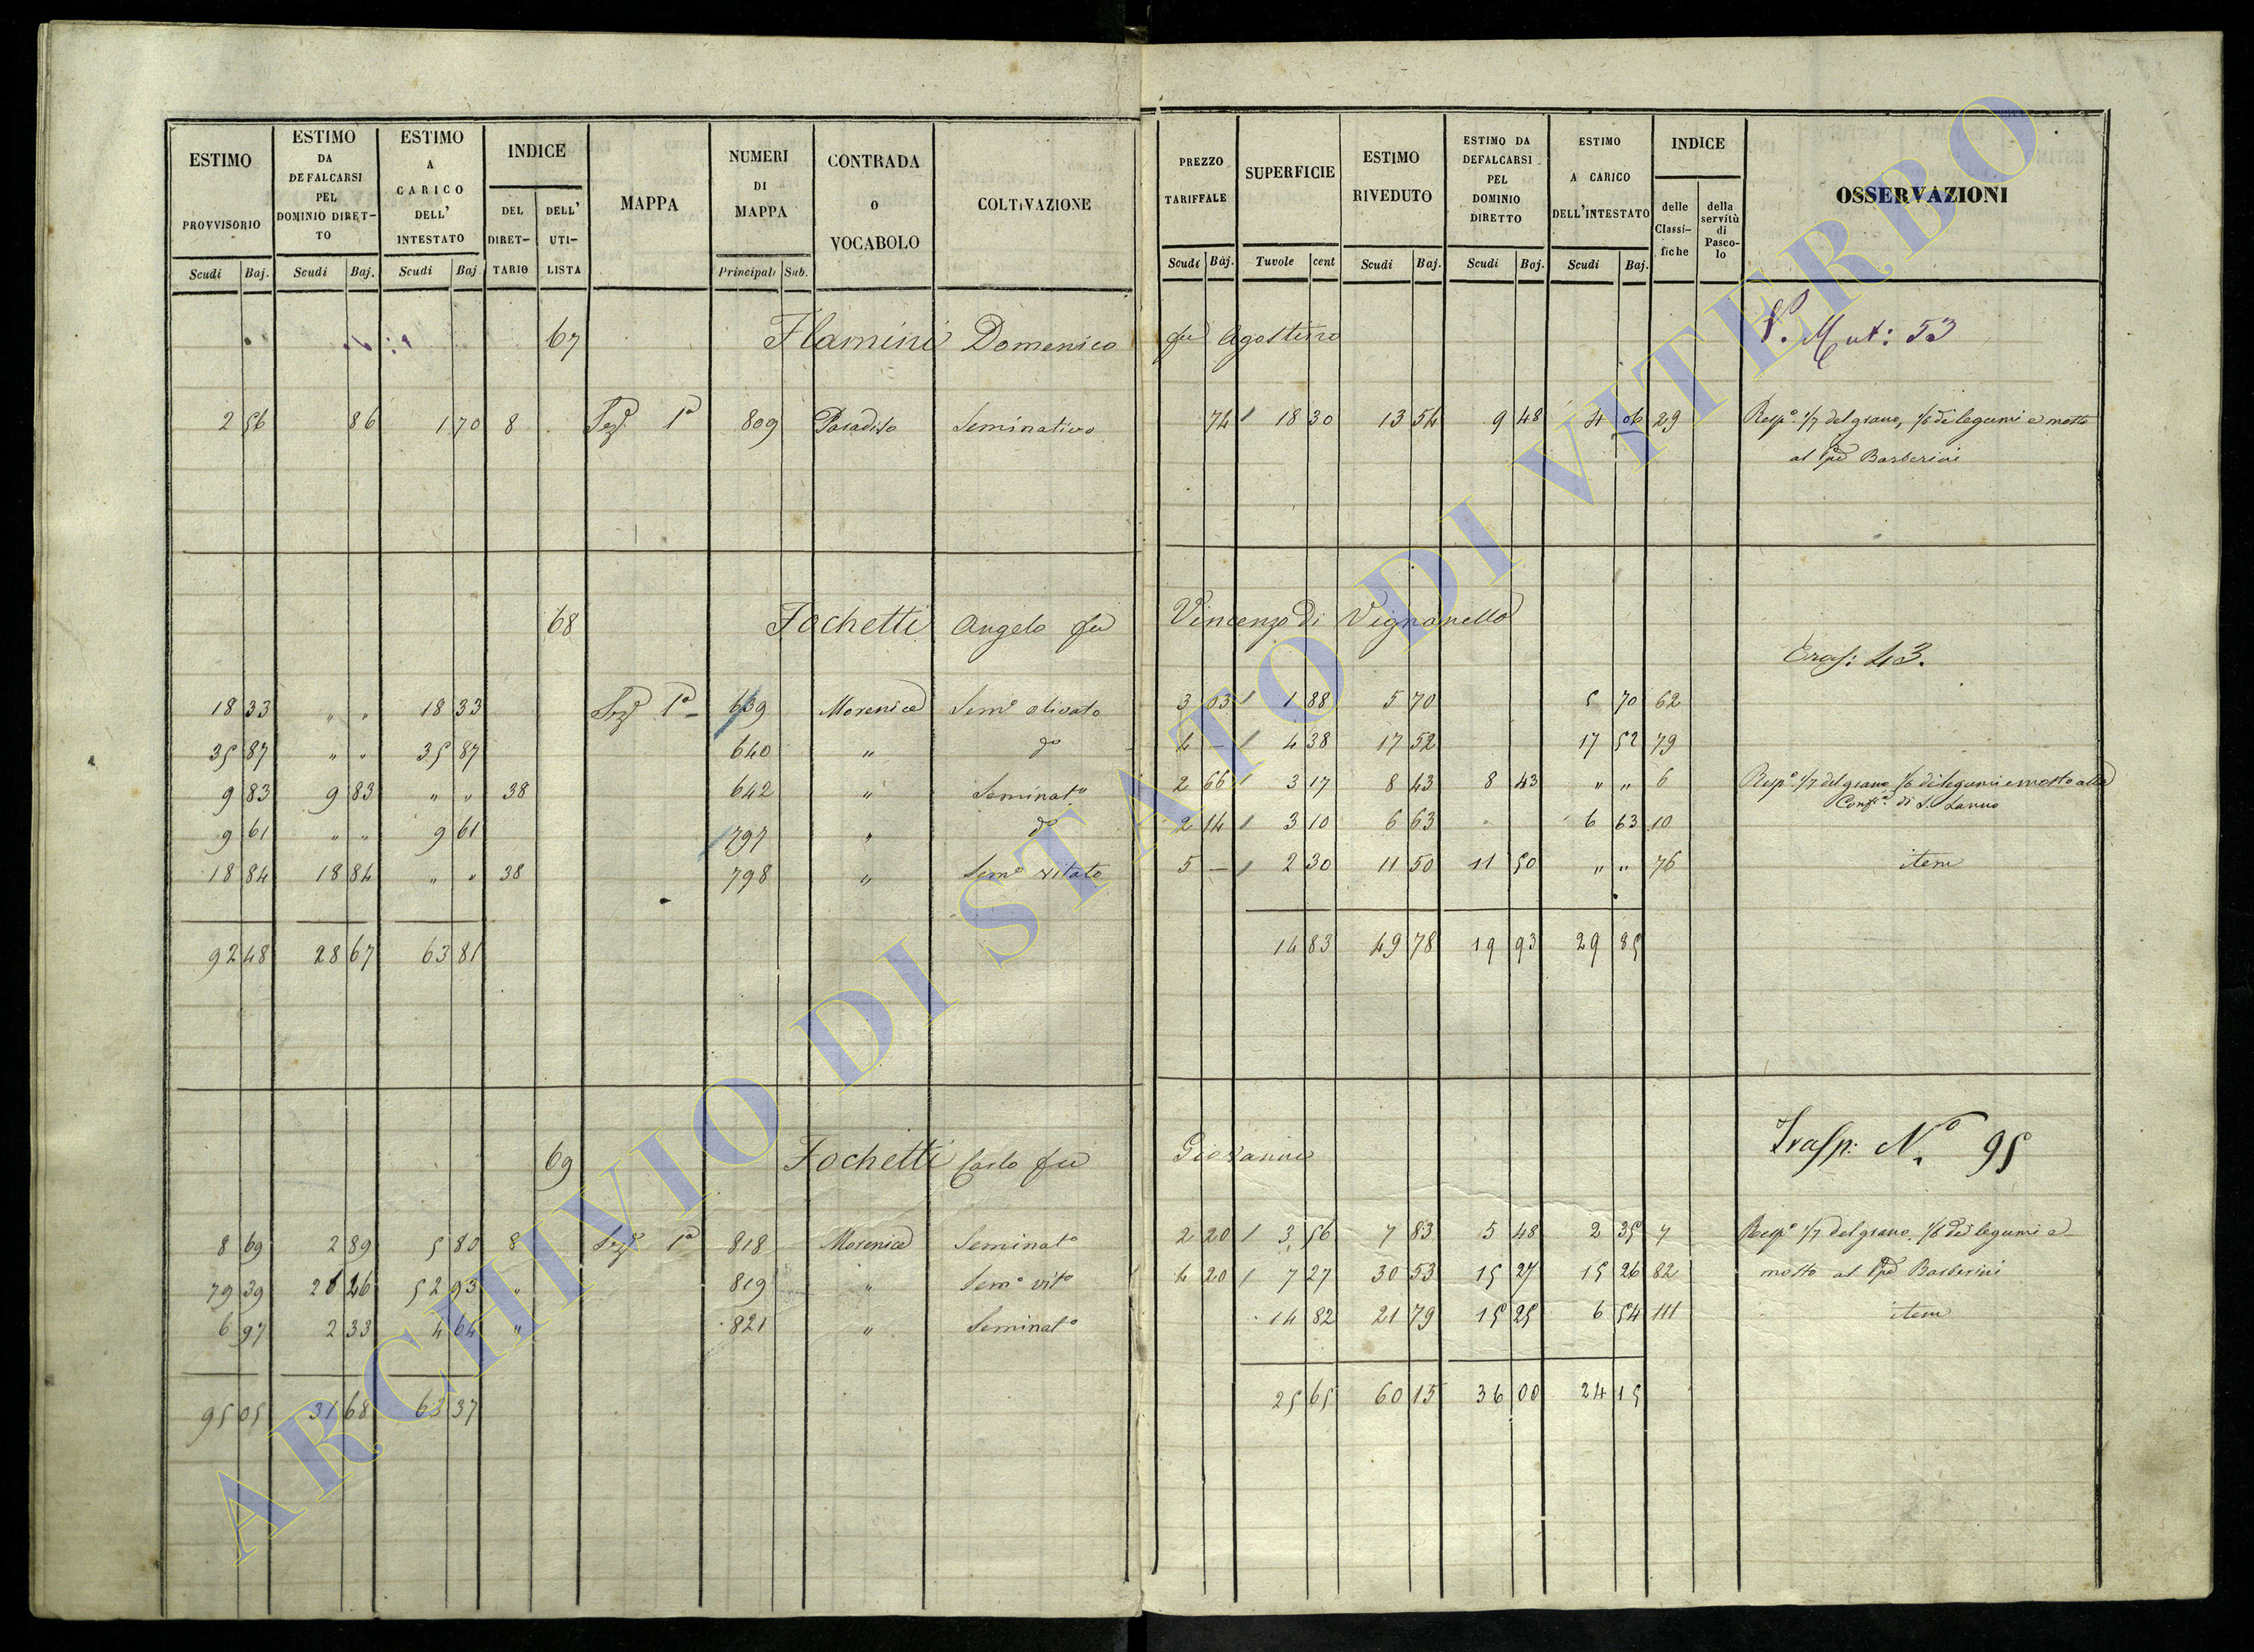 ESTIMO PROVVISORIO Scudi Baj.
ESTIMO DA DEFALCARSI PEL DOMINIO DIRETTO Scudi Baj.
ESTIMO A CARICO DELL' INTESTATO Scudi Baj
INDICE DEL DIRETTARIO DELL' UTILISTA
MAPPA
NUMERI DI MAPPA Principali Sub.
CONTRADA O VOCABOLO
COLTIVAZIONE
PREZZO TARIFFALE Scudi Baj.
SUPERFICIE Tavole cent
ESTIMO RIVEDUTO Scudi Baj.
ESTIMO DA DEFALCARSI PEL DOMINIO DIRETTO Scudi Baj.
ESTIMO A CARICO DELL'INTESTATO Scudi Baj.
INDICE delle Classifiche della servitù di Pascolo
OSSERVAZIONI
67 Flamini Domenico fu Agostino V. Mut: 53
2 56 86 1 70 8 Sez. 1a 809 Paradiso Seminativo 74 1 18 30 13 54 9 48 4 06 29 Resp.e 1/7 del grano, 1/6 di legumi e mosto
al Barberini
68 Fochetti Angelo fu Vincenzo di Vignanello
Trasp: 43.
18 33 " " 18 33 Sez. 1a 639 Morenica Sem.o olivato 3 03 1 1 88 5 70 5 70 62
35 87 " " 35 87 640 " do 4 - 1 4 38 17 52 17 52 79
9 83 9 83 " " 38 642 " Seminat.o 2 66 1 3 17 8 43 8 43 " " 6 Resp.e 1/7 del grano 1/6 di legumi e mosto alla
Conf.a di S.
9 61 " " 9 61 797 " do 2 14 1 3 10 6 63 6 63 10
18 84 18 84 " " 38 798 " Sem.o vitato 5 - 1 2 30 11 50 11 50 " " 76 item
92 48 28 67 63 81 14 83 49 78 19 93 29 85
69 Fochetti Carlo fu Giovanni Trasp: N.o 95
8 69 2 89 5 80 8 Sez. 1a 818 Morenica Seminat.o 2 20 1 3 56 7 83 5 48 2 35 7 Resp.e 1/7 del grano, 1/6 di legumi e
79 39 26 46 52 93 " 819 " Sem.o vit.o 4 20 1 7 27 30 53 15 27 15 26 82 mosto al Barberini
6 97 2 33 4 64 " 821 " Seminat.o 14 82 21 79 15 25 6 54 111 item
95 05 31 68 63 37 25 65 60 15 36 00 24 15
ARCHIVIO DI STATO DI VITERBO